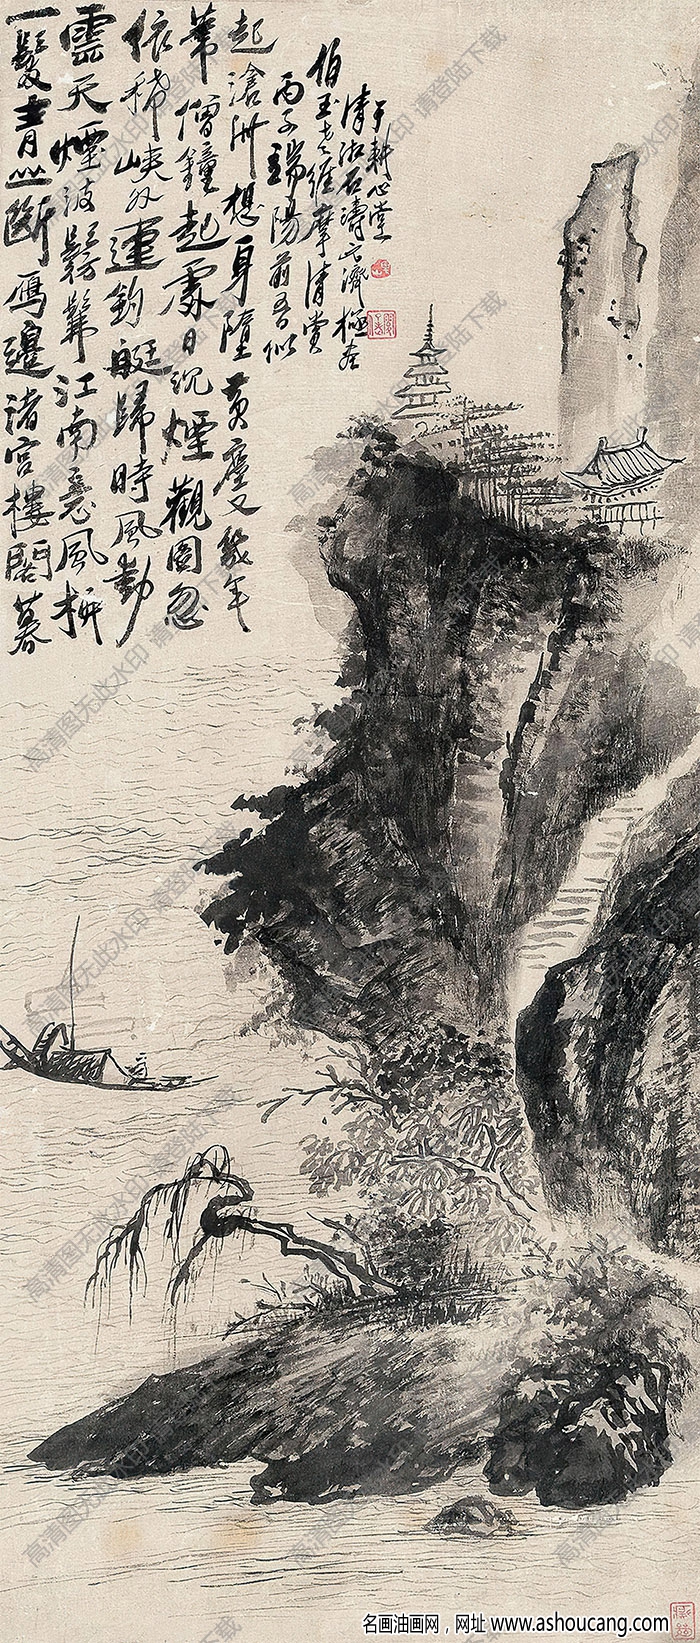 一髮青山斷雁邊渚宮樓閣暮
雲天煙波髣髴江南意風物
依稀峽外連釣艇歸時風動
葦僧鐘起處日沉煙觀圖忽
起滄洲想身墮黃塵又幾年
丙子端陽前
伯玉老維摩清賞
清湘石濤元濟極
于耕心堂
高清图无此水印 请登陆下载
名画油画网，网址 www.ashoucang.com